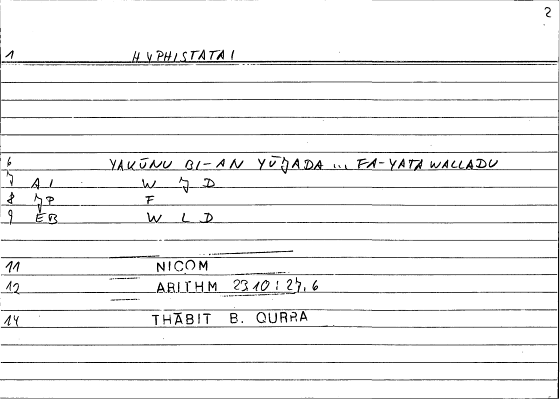 2
1 HYPHISTATAI
6 YAKŪNU BI-AN YŪǦADA ... FA-YATAWALLADU
7 AI W Ǧ D
8 ǦP F
9 EB W L D
11 NICOM
12 ARITHM 23.10 : 27,6
14 THĀBIT B. QURRA